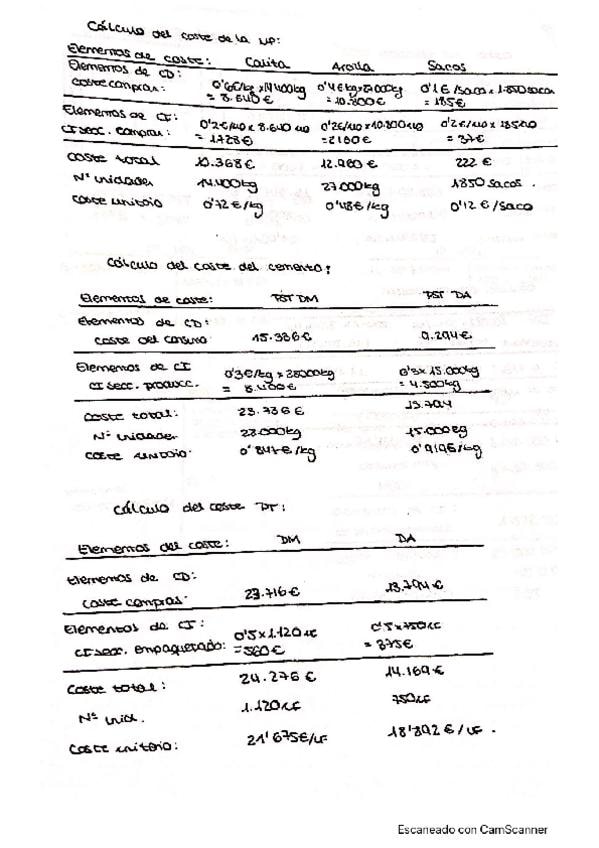 Cálculo del coste de la MP:
Elementos de coste: Caliza Arcilla Sacos
Elementos de CD:
coste compras: 0'6€/kg x 14400kg 0'4€/kg x 27000kg 0'1€/saco x 1.850 sacos
= 8.640€ = 10.800€ = 185€
Elementos de CI: 0'2€/um x 8.640 um 0'2€/um x 10.800um 0'2€/um x 185um
CI secc. compras: = 1728€ = 2160€ = 37€
coste total 10.368€ 12.960€ 222€
Nº unidades 14.400kg 27.000kg 1850 sacos.
coste unitario 0'72€/kg 0'48€/kg 0'12€/saco
Cálculo del coste del cemento:
Elementos de coste: PST DM PST DA
Elementos de CD:
coste del consumo 15.336€ 9.294€
Elementos de CI 0'3€/kg x 28000kg 0'3 x 15.000kg
CI secc. producc. = 8.400€ = 4.500kg
coste total: 23.736€ 13.794
Nº unidades 28.000kg 15.000kg
coste unitario: 0'847€/kg 0'919€/kg
Cálculo del coste PT:
Elementos del coste: DM DA
Elementos de CD:
coste compras: 23.716€ 13.794€
Elementos de CI: 0'5 x 1.120 UF 0'5 x 750 UF
CI secc. empaquetado: = 560€ = 375€
Coste total: 24.276€ 14.169€
Nº unid. 1.120 UF 750 UF
coste unitario: 21'675€/UF 18'892€/UF.
Escaneado con CamScanner